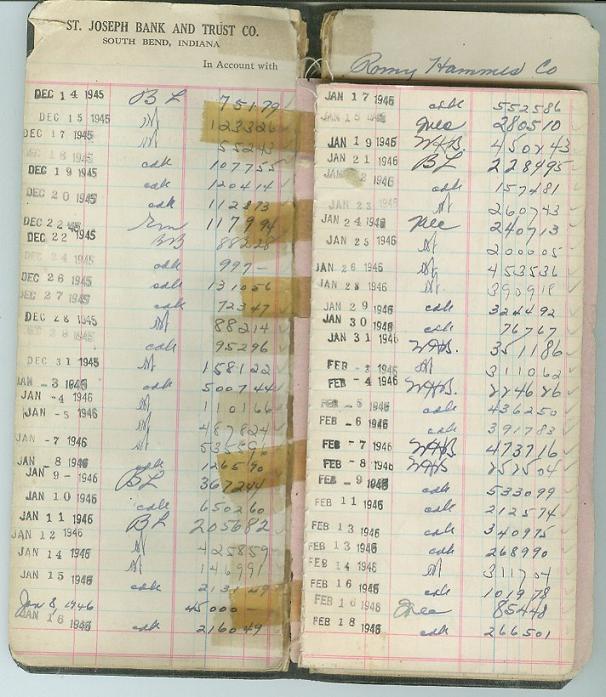 ST. JOSEPH BANK AND TRUST CO.
SOUTH BEND, INDIANA
In Account with
DEC 14 1945 BL 75179
DEC 15 1945 123326
DEC 17 1945 55243
DEC 18 1945 107755
DEC 19 1945 cdk 120414
DEC 20 1945 cdk 112373
DEC 22 1945 117994
DEC 22 1945 88228
DEC 24 1945 cdk 997-
DEC 26 1945 cdk 131056
DEC 27 1945 cdk 72347
DEC 28 1945 88214
cdk 95296
DEC 31 1945 158122
JAN -3 1946 cdk 500744
JAN -4 1946 110166
JAN -5 1946 487824
JAN -7 1946
JAN -8 1946 cdk 126590
JAN 9- 1946 BL 367244
JAN 10 1946 cdk 650260
JAN 11 1946 BL 205682
JAN 12 1946 425859
JAN 14 1946 146991
JAN 15 1946 cdk
Jan 8, 1946 45000
JAN 16 1946 cdk 216049
Romy Hammes Co
JAN 17 1946 cdk 552586
280510
JAN 19 1946 WHB. 450243
JAN 21 1946 BL 228495
1946 cdk 157281
260743
JAN 24 1946 240713
JAN 25 1946 200005
JAN 26 1946 453536
JAN 28 1946 390918
JAN 29 1946 cdk 324492
JAN 30 1946 cdk 76767
JAN 31 1946 WHB. 351186
FEB 1946 311062
FEB -4 1946 WHB.
FEB -5 1946 cdk 436250
FEB -6 1946 cdk 391783
FEB -7 1946 WHB 473716
FEB -8 1946 WHB 252504
FEB -9 1946 cdk 533099
FEB 11 1946 cdk 212574
FEB 13 1946 cdk 340975
FEB 13 1946 cdk 268990
FEB 14 1946 311704
FEB 16 1946 cdk 101978
FEB 16 1946 85448
FEB 18 1946 cdk 266501